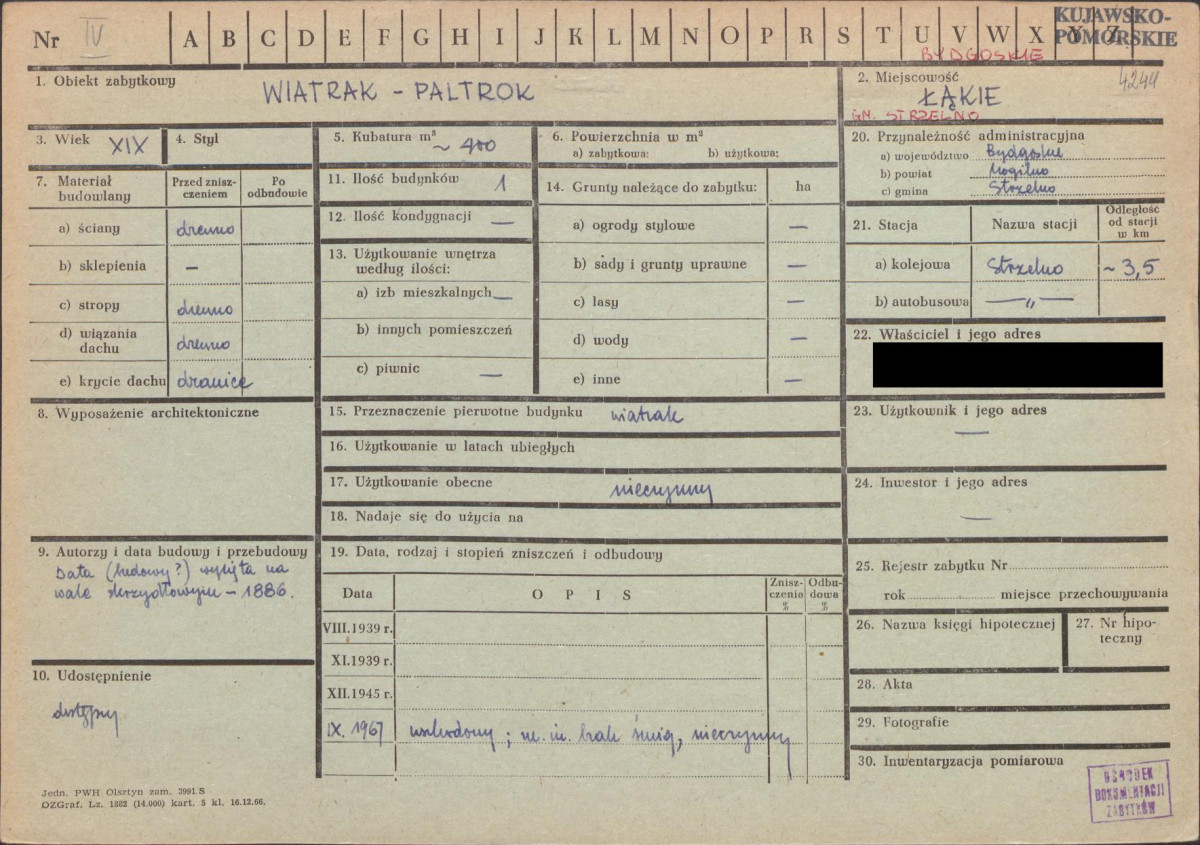 Nr IV A B C D E F G H I J K L M N O P R S T U V W X Y Z
KUJAWSKO-
POMORSKIE
BYDGOSKIE
1. Obiekt zabytkowy
WIATRAK - PALTROK
2. Miejscowość
4244
ŁĄKIE
GM. STRZELNO
3. Wiek XIX
4. Styl
5. Kubatura m³
~ 400
6. Powierzchnia w m²
a) zabytkowa: b) użytkowa:
20. Przynależność administracyjna
a) województwo Bydgoskie
b) powiat Mogilno
c) gmina Strzelno
7. Materiał budowlany
Przed zniszczeniem
Po odbudowie
a) ściany drewno
b) sklepienia —
c) stropy drewno
d) wiązania dachu drewno
e) krycie dachu dranice
11. Ilość budynków 1
12. Ilość kondygnacji —
13. Użytkowanie wnętrza
według ilości:
a) izb mieszkalnych —
b) innych pomieszczeń
c) piwnic —
14. Grunty należące do zabytku: ha
a) ogrody stylowe —
b) sady i grunty uprawne —
c) lasy —
d) wody —
e) inne —
21. Stacja
Nazwa stacji
Odległość
od stacji
w km
a) kolejowa Strzelno ~ 3,5
b) autobusowa —„—
22. Właściciel i jego adres
8. Wyposażenie architektoniczne
15. Przeznaczenie pierwotne budynku wiatrak
16. Użytkowanie w latach ubiegłych
17. Użytkowanie obecne nieczynny
18. Nadaje się do użycia na
23. Użytkownik i jego adres
—
24. Inwestor i jego adres
—
9. Autorzy i data budowy i przebudowy
Data (budowy?) wyryta na
wale skrzydłowym – 1886.
19. Data, rodzaj i stopień zniszczeń i odbudowy
Data
OPIS
Znisz-
czenia
%
Odbu-
dowa
%
VIII.1939 r.
XI.1939 r.
XII.1945 r.
IX. 1967 uszkodzony; m. in. brak śmig, nieczynny
25. Rejestr zabytku Nr
rok miejsce przechowywania
26. Nazwa księgi hipotecznej
27. Nr hipo-
teczny
10. Udostępnienie
dostępny
28. Akta
29. Fotografie
30. Inwentaryzacja pomiarowa
OŚRODEK
DOKUMENTACJI
ZABYTKÓW
Jedn. PWH Olsztyn zam. 3991.S
OZGraf. Lz. 1882 (14.000) kart. 5 kl. 16.12.66.